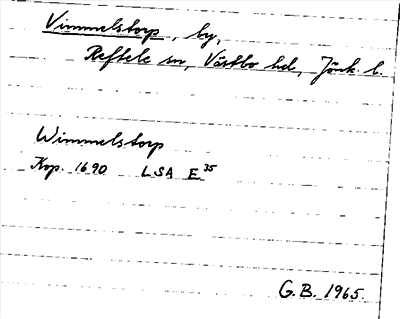 Vimmelstorp, by,
Reftele sn, Västbo hd, Jönk. l.
Wimmelstorp
Kop. 1690 LSA E 35
G.B. 1965.